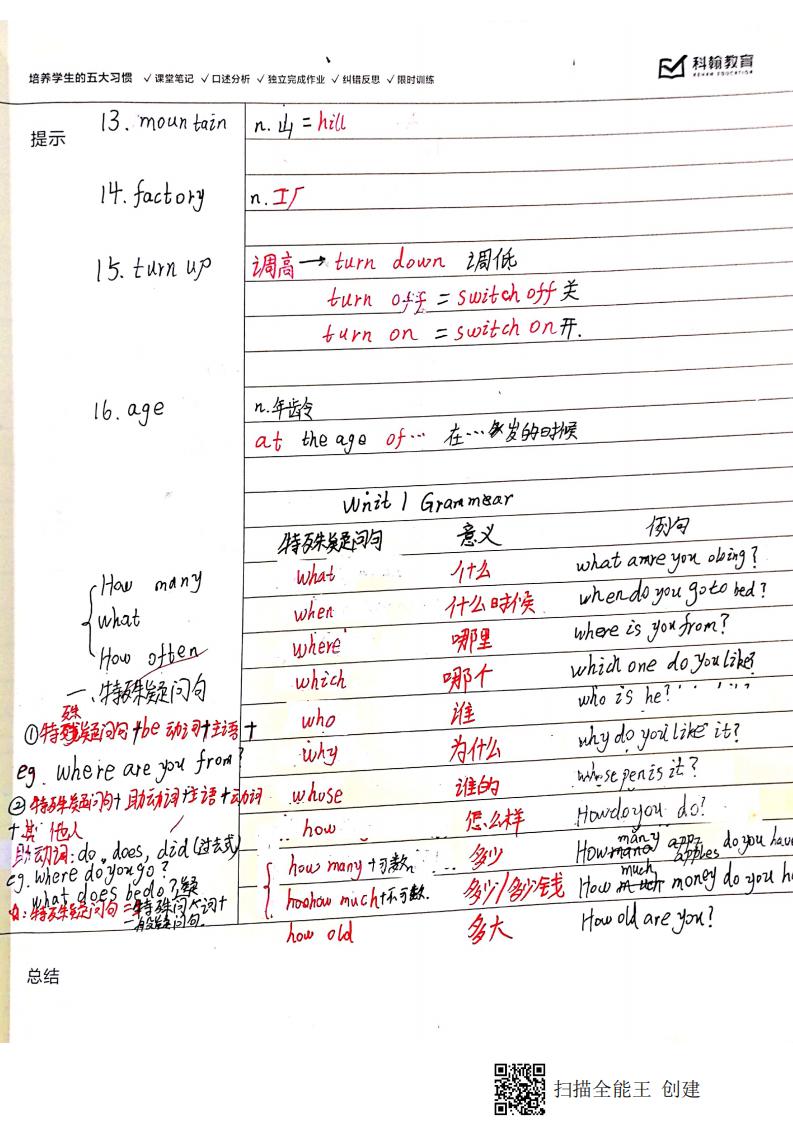 培养学生的五大习惯 ✓课堂笔记 ✓口述分析 ✓独立完成作业 ✓纠错反思 ✓限时训练
科翰教育
KEHAN EDUCATION
提示
13. mountain n. 山 = hill
14. factory n. 工厂
15. turn up 调高 → turn down 调低
turn off = switch off 关
turn on = switch on 开.
16. age n. 年龄
at the age of… 在…岁的时候
Unit 1 Grammar
特殊疑问句 意义 例句
what 什么 what are you doing?
when 什么时候 when do you go to bed?
where 哪里 where is you from?
which 哪个 which one do you like?
who 谁 who is he?
why 为什么 why do you like it?
whose 谁的 whose pen is it?
how 怎么样 How do you do?
how many + 可数n 多少 How many apples do you have
how much + 不可数. 多少/多少钱 How much money do you h
how old 多大 How old are you?
How many
what
How often
一、特殊疑问句
①特殊疑问句+be 动词+主语+
eg. where are you from?
②特殊疑问句+助动词+主语+动词
+其他人
助动词: do, does, did (过去式)
eg. where do you go?
what does he do?
特殊疑问句 = 特殊疑问词+
一般疑问句.
总结
扫描全能王 创建